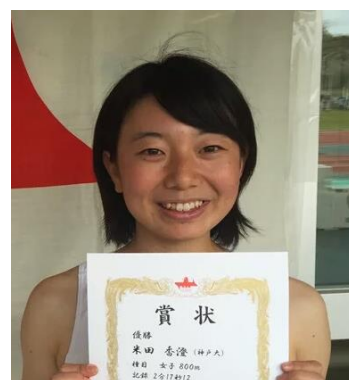 賞状
優勝
米田 香澄 (神戸大)
種目 女子 800m
記録 2分12秒12